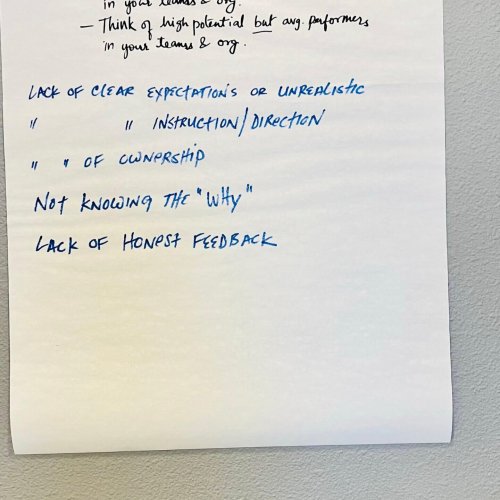 in your teams & org.
— Think of high potential but avg. performers
in your teams & org.
LACK OF CLEAR EXPECTATIONS OR UNREALISTIC
" " INSTRUCTION/DIRECTION
" " OF OWNERSHIP
NOT KNOWING THE "WHY"
LACK OF HONEST FEEDBACK